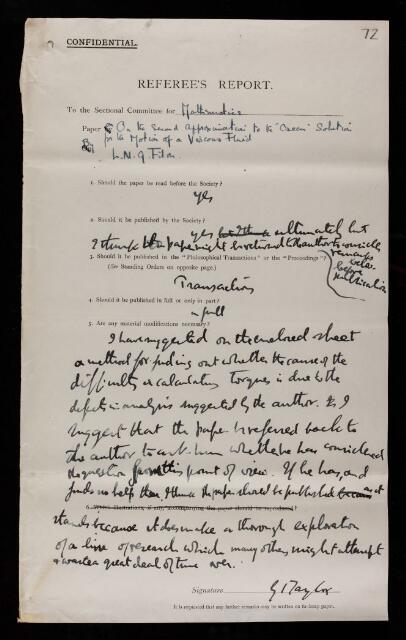 CONFIDENTIAL.
72
REFEREE'S REPORT.
To the Sectional Committee for Mathematics
Paper On the Second Approximation to the "Oseen" Solution
By for the Motion of a Viscous Fluid
L.N.G. Filon
1. Should the paper be read before the Society?
Yes
2. Should it be published by the Society?
yes ultimately but
I think the paper might be returned to the author to consider
remarks below before publication
3. Should it be published in the "Philosophical Transactions" or the "Proceedings"?
(See Standing Orders on opposite page.)
Transactions
4. Should it be published in full or only in part?
in full
5. Are any material modifications necessary?
I have suggested on the enclosed sheet
a method for finding out whether the cause of the
difficulty in calculating torques is due to the
defects in analysis suggested by the author.
suggest that the paper be referred back to
the author to ask him whether he has considered
the question from this point of view. If he has, and
finds no help then I think the paper should be published as it
6. Which illustrations, if any, accompanying the paper should be reproduced?
stands because it does make a thorough exploration
of a line of research which many others might attempt
& waste a great deal of time over.
Signature G I Taylor
It is requested that any further remarks may be written on foolscap paper.